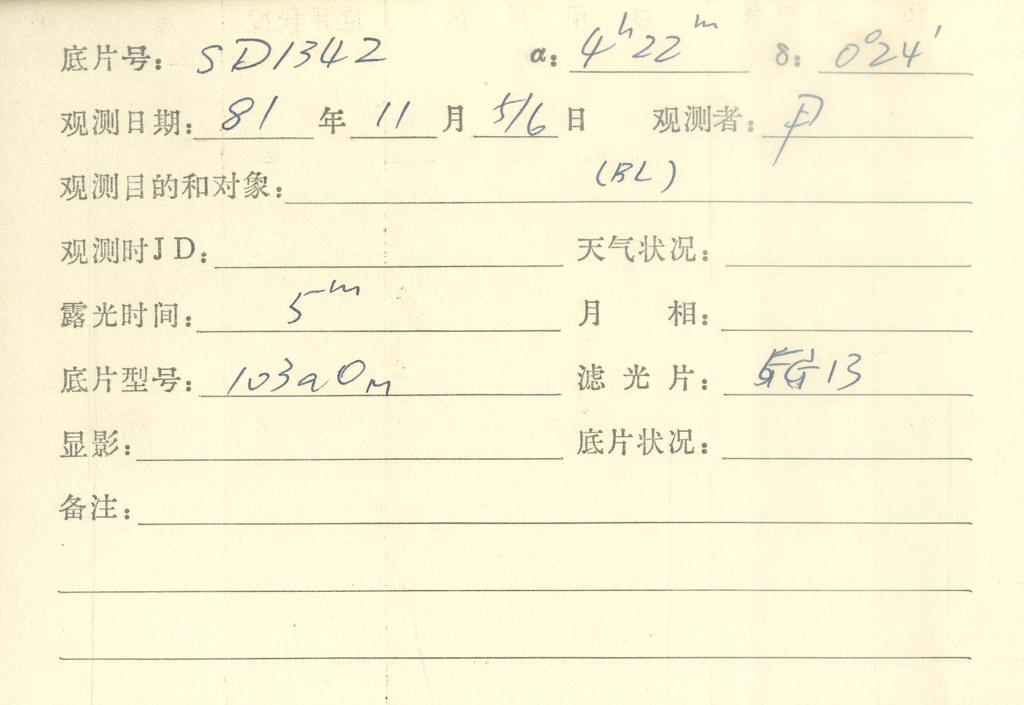 底片号: SD1342 α: 4ʰ22ᵐ δ: 0°24′
观测日期: 81 年 11 月 5/6 日 观测者:
观测目的和对象: (BL)
观测时JD: 天气状况:
露光时间: 5ᵐ 月 相:
底片型号: 103aO 滤光片: GG13
显影: 底片状况:
备注: